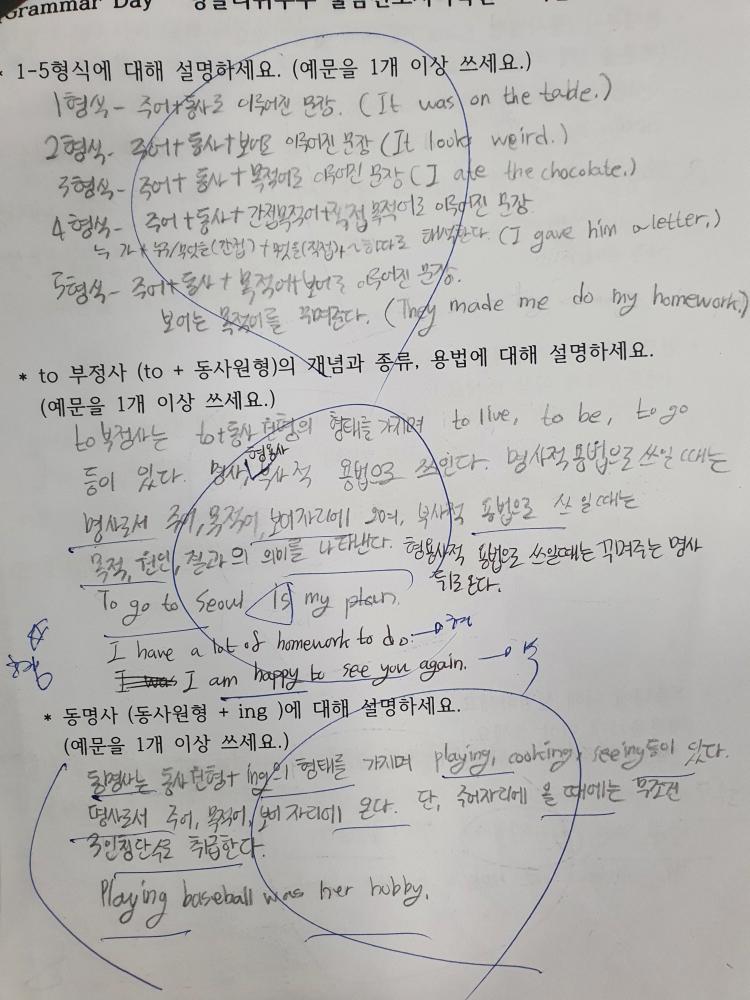 Grammar Day
* 1-5형식에 대해 설명하세요. (예문을 1개 이상 쓰세요.)
1형식- 주어+동사로 이루어진 문장. (It was on the table.)
2형식- 주어+동사+보어로 이루어진 문장 (It looks weird.)
3형식- 주어+동사+목적어로 이루어진 문장 (I ate the chocolate.)
4형식- 주어+동사+간접목적어+직접목적어로 이루어진 문장
누가 * 누구/무엇을(간접) + 무엇을(직접) ~하다로 해석한다. (I gave him a letter.)
5형식- 주어+동사+목적어+보어로 이루어진 문장.
보어는 목적어를 꾸며준다. (They made me do my homework.)
* to 부정사 (to + 동사원형)의 개념과 종류, 용법에 대해 설명하세요.
(예문을 1개 이상 쓰세요.)
to부정사는 to+동사원형의 형태를 가지며 to live, to be, to go
등이 있다. 명사, 형용사, 부사적 용법으로 쓰인다. 명사적 용법으로 쓰일 때는
명사로서 주어, 목적어, 보어자리에 쓰이며, 부사적 용법으로 쓰일때는
목적, 원인, 결과의 의미를 나타낸다. 형용사적 용법으로 쓰일때는 꾸며주는 명사
뒤로 온다.
To go to Seoul is my plan.
I have a lot of homework to do. → 형
I am happy to see you again. → 부
* 동명사 (동사원형 + ing )에 대해 설명하세요.
(예문을 1개 이상 쓰세요.)
동명사는 동사원형+ing의 형태를 가지며 playing, cooking, seeing등이 있다.
명사로서 주어, 목적어, 보어자리에 온다. 단, 주어자리에 올 때에는 무조건
3인칭단수로 취급한다.
Playing baseball was her hobby.